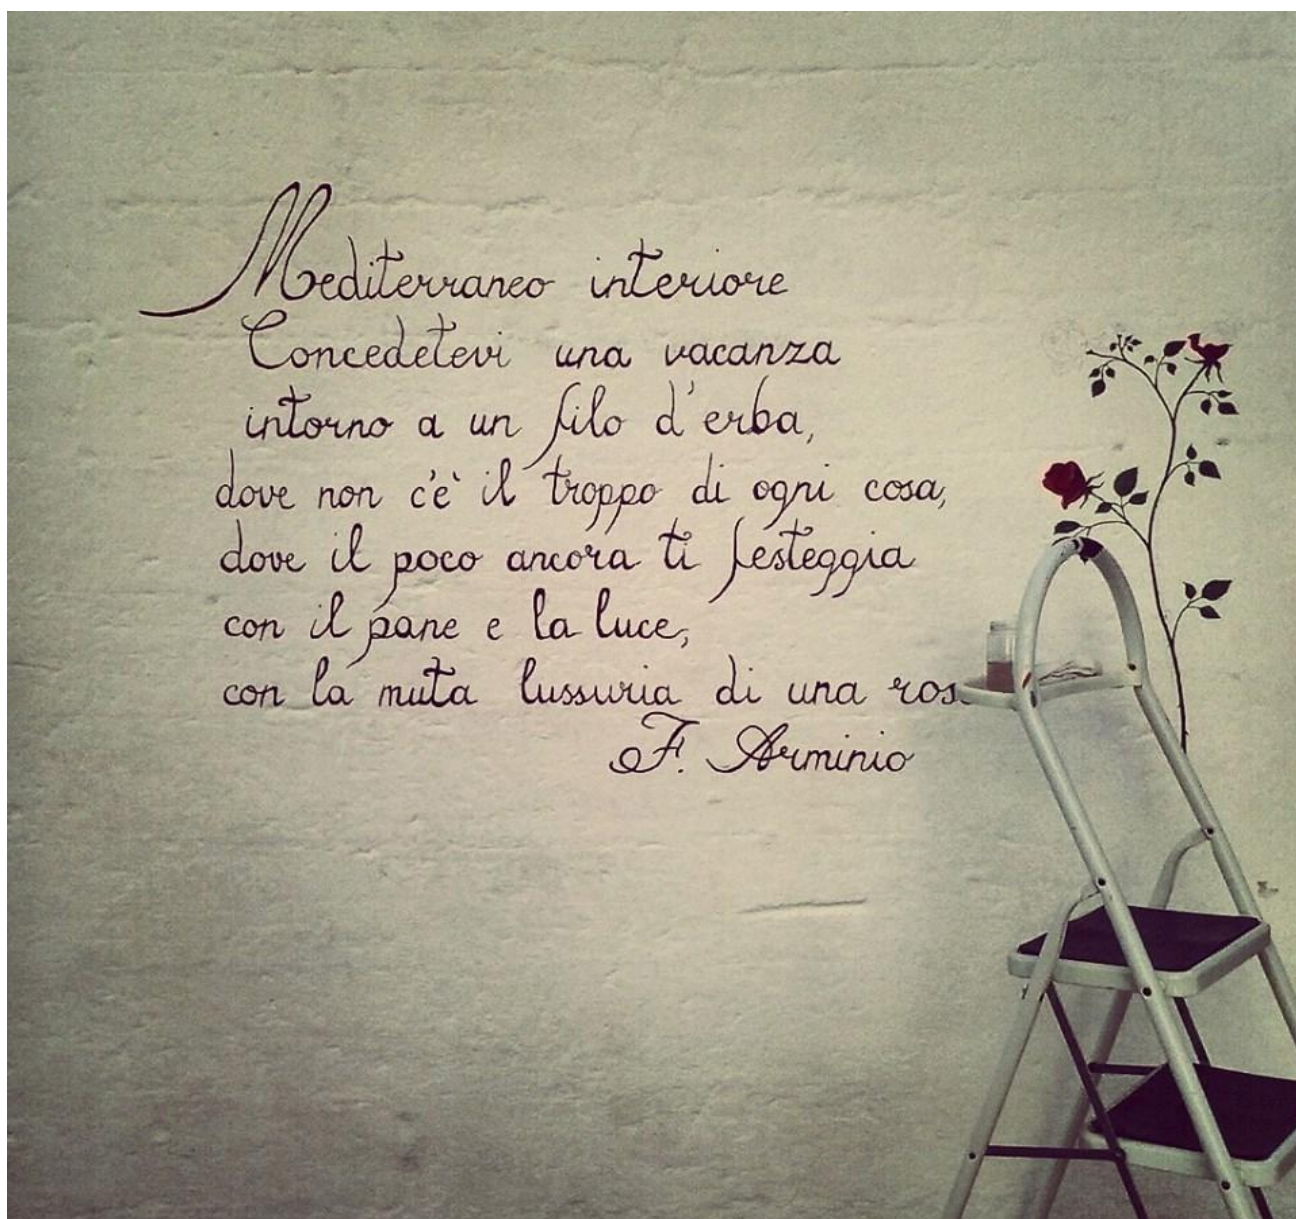 Mediterraneo interiore
Concedetevi una vacanza
intorno a un filo d'erba,
dove non c'è il troppo di ogni cosa,
dove il poco ancora ti festeggia
con il pane e la luce,
con la muta lussuria di una ros
F. Arminio